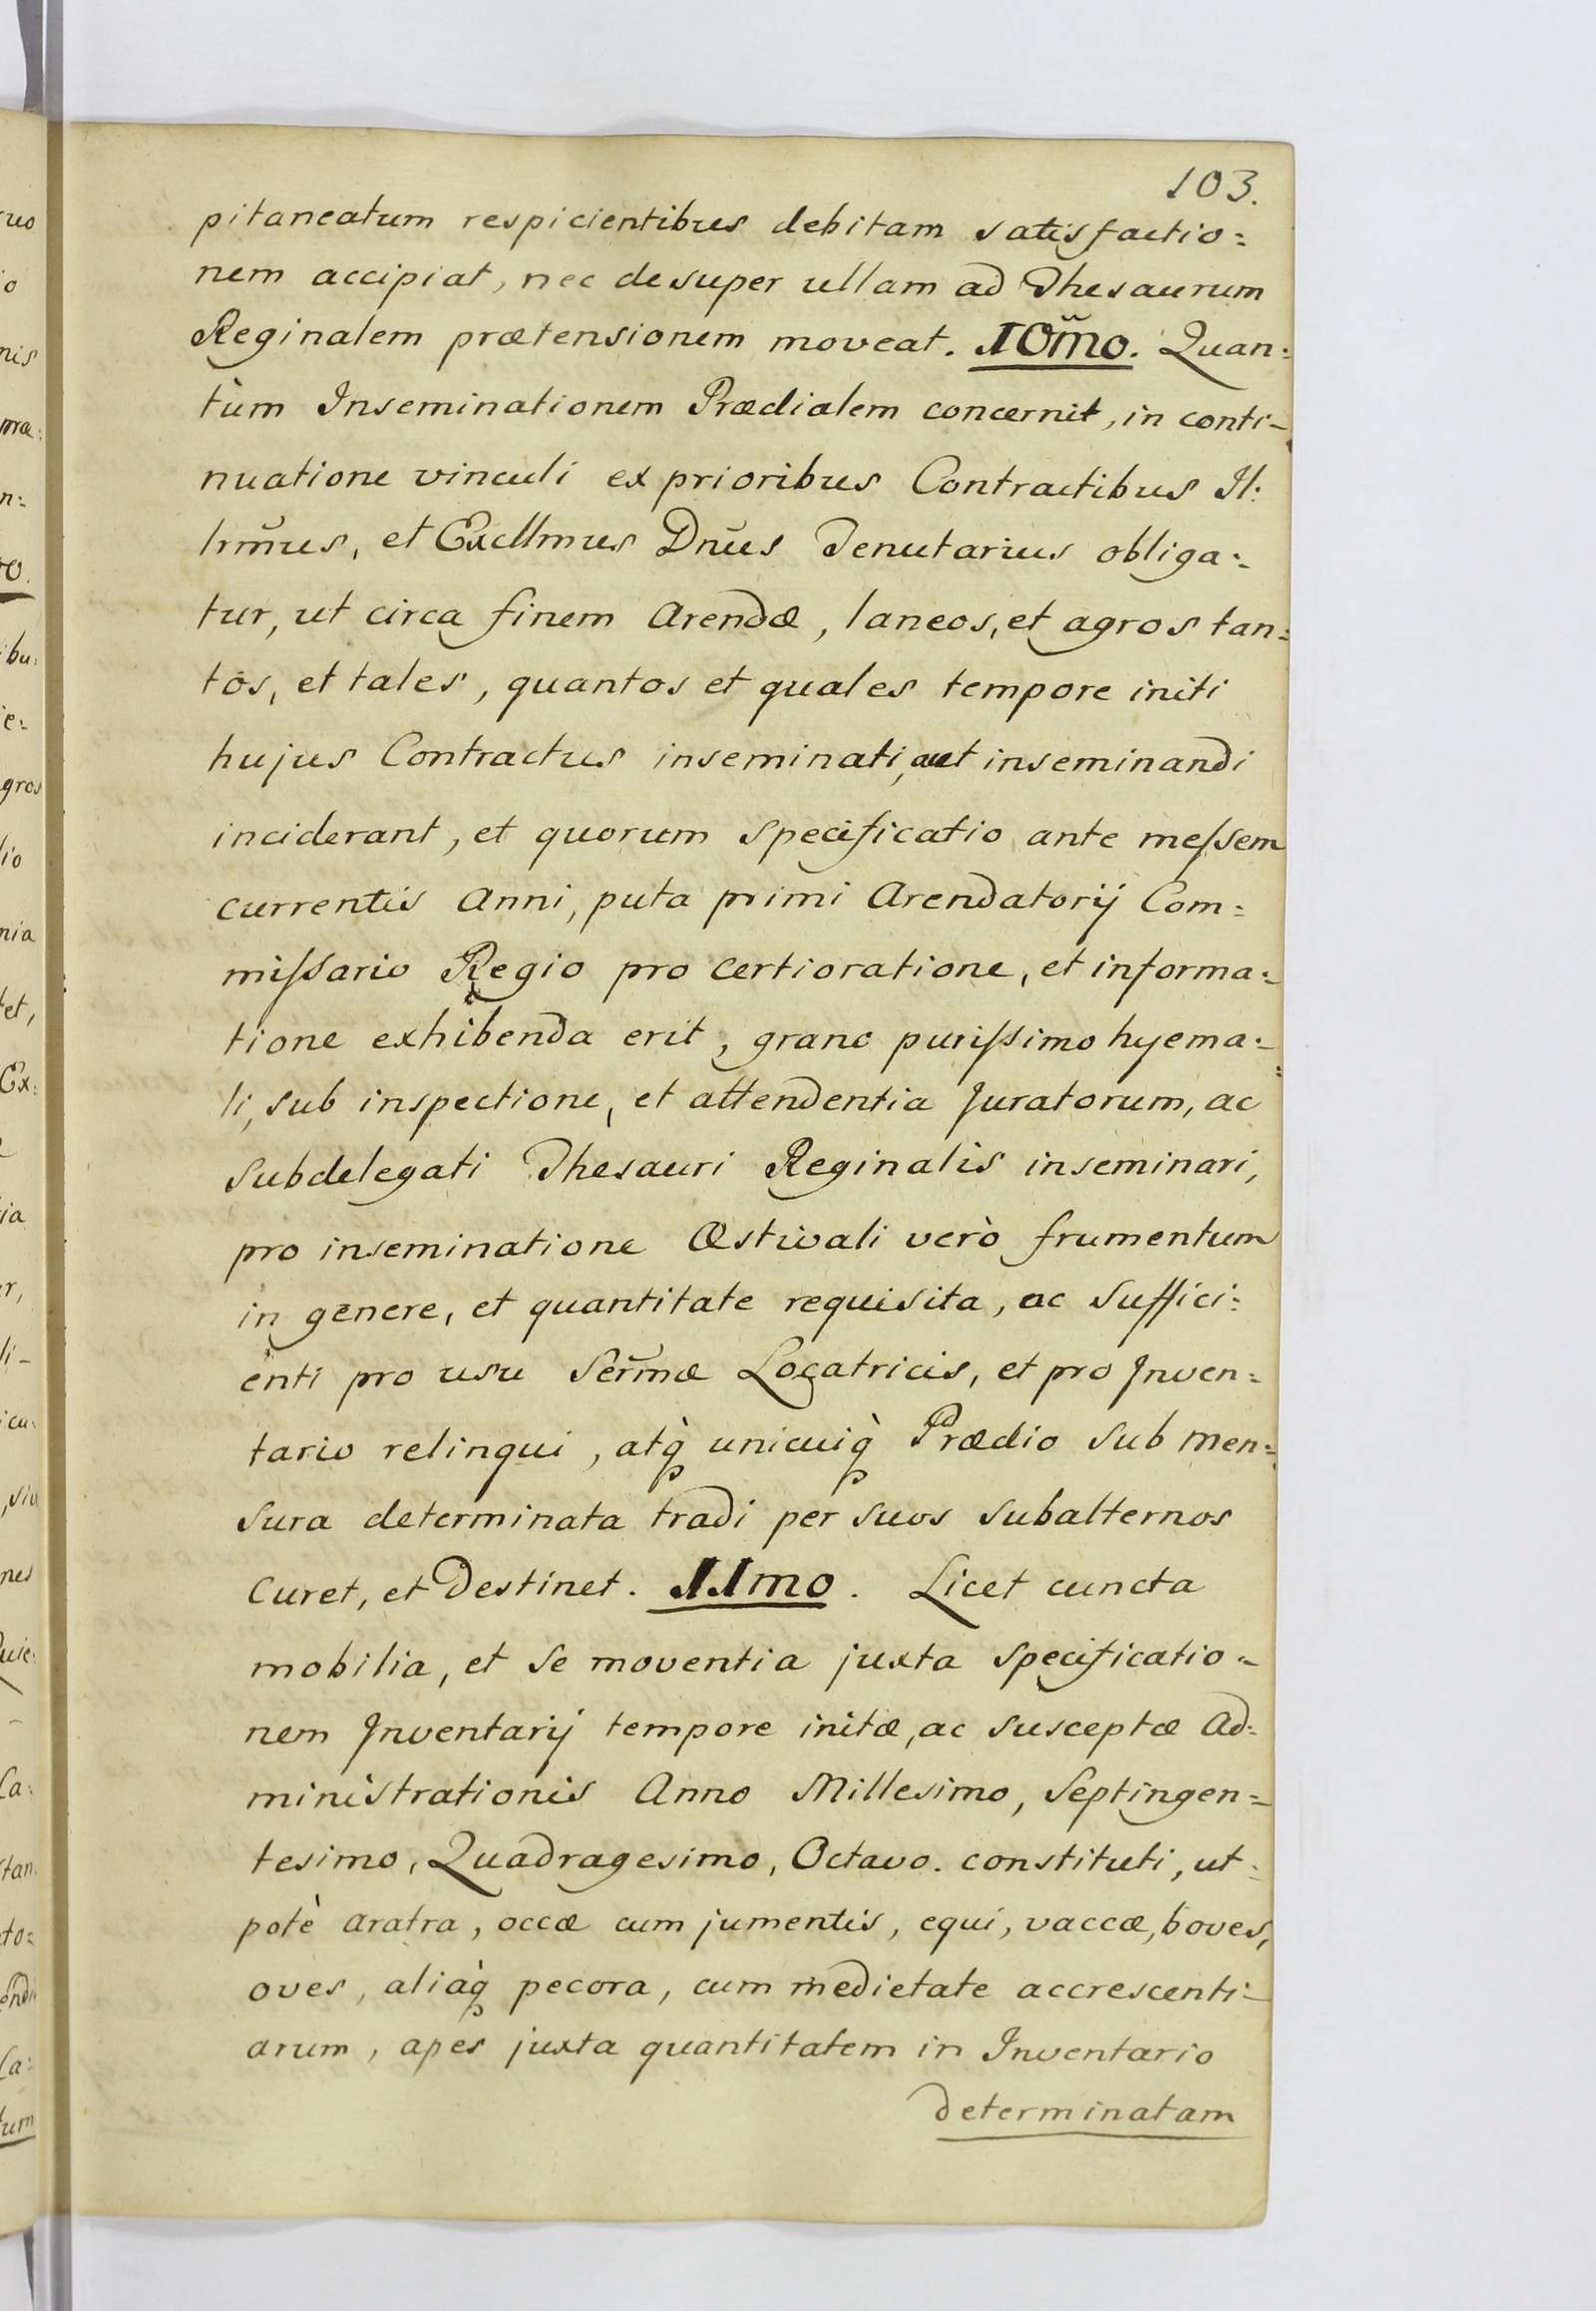 103.
pitaneatum respicientibus debitam satisfactio=
nem accipiat, nec desuper ullam ad Thesaurum
Reginalem prætensionem moveat. 10m̃o. Quan=
tùm Inseminationem Prædialem concernit, in conti-
nuatione vinculi ex prioribus Contractibus Il:
lim̃us, et Excllmus Dñus Tenutarius obliga=
tur, ut circa finem Arendæ, laneos, et agros tan=
tos, et tales, quantos et quales tempore initi
hujus Contractus inseminati, aut inseminandi
inciderant, et quorum specificatio ante meſsem
currentis Anni, puta primi Arendatorij Com=
miſsario Regio pro certioratione, et informa=
tione exhibenda erit, grano puriſsimo hyema=
li, sub inspectione, et attendentia Juratorum, ac
Subdelegati Thesauri Reginalis inseminari,
pro inseminatione Æstivali verò frumentum
in genere, et quantitate requisita, ac suffici=
enti pro usu Serm̃æ Locatricis, et pro Inven=
tario relinqui, atq̀ unicuiq̀ Prædio sub men=
sura determinata tradi per suos subalternos
Curet, et Destinet. 11mo. Licet cuncta
mobilia, et se moventia juxta specificatio=
nem Inventarij tempore initæ, ac susceptæ Ad=
ministrationis Anno Millesimo, Septingen=
tesimo, Quadragesimo, Octavo. constituti, ut=
potè aratra, occæ cum jumentis, equi, vaccæ, boves,
oves, aliaq̀ pecora, cum medietate accrescenti=
arum, apes juxta quantitatem in Inventario
determinatam